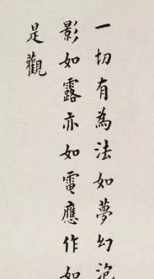 一切有為法如夢幻泡
影如露亦如電應作如
是觀